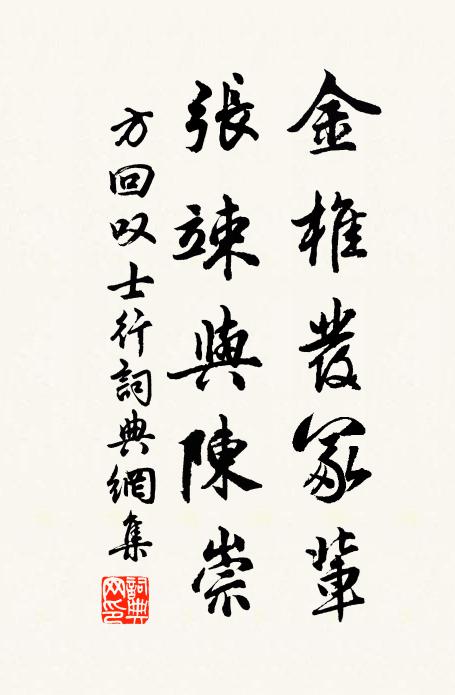 金椎發冢輩
張竦與陳崇
方回叹士行詞典網集
詞典網印